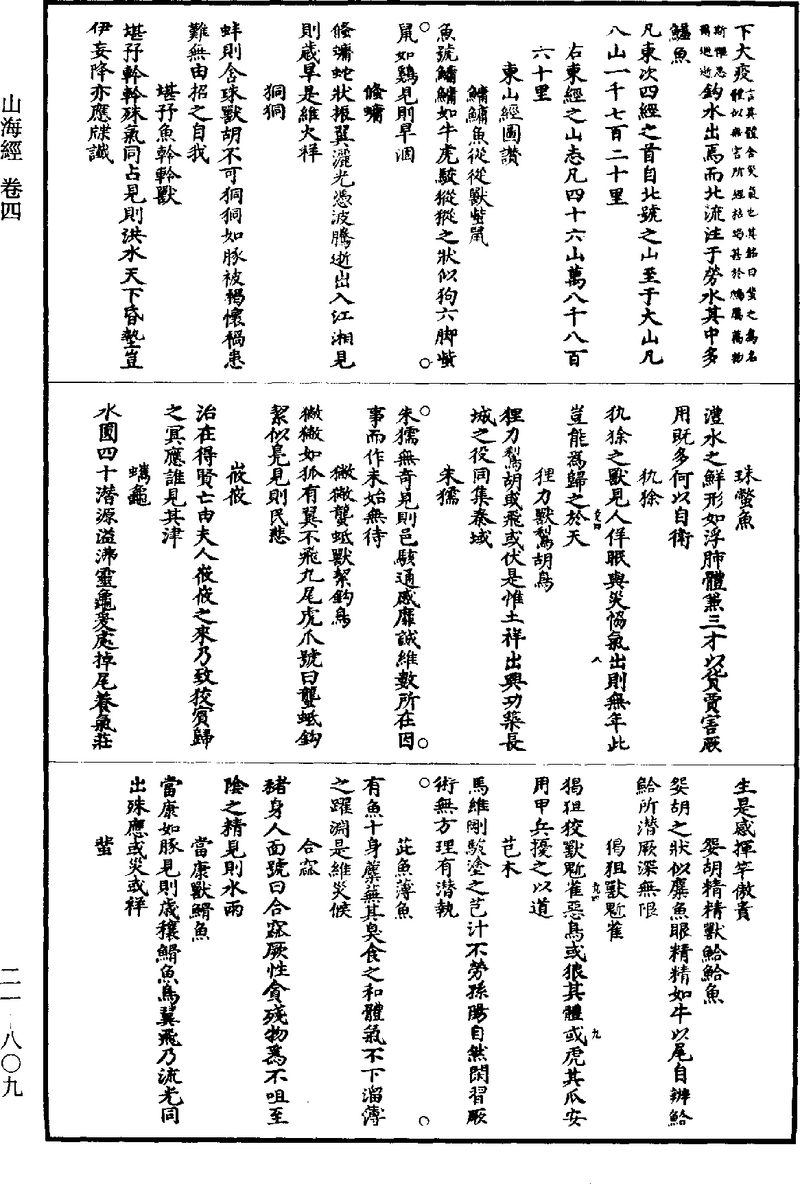 下大疫言其體含災氣也其銘曰蜚之為名
體似無害所經枯竭甚於鴆厲萬物
斯懼思爾遐逝鈎水出焉而北流注于勞水其中多
鱃魚
凡東次四經之首自北號之山至于大山凡
八山一千七百二十里
右東經之山志凡四十六山萬八千八百
六十里
東山經圖讚
鱅鱅魚從從獸蚩鼠
魚號鱅鱅如牛虎駮猣猣之狀似狗六脚蚩
鼠如鷄見則旱涸
絛蠵
絛蠵蛇狀振翼灑光憑波騰逝出入江湘見
則歲旱是維火祥
狪狪
蚌則含珠獸胡不可狪狪如豚被褐懷禍患
難無由招之自我
堪㐨魚軨軨獸
堪㐨軨軨殊氣同占見則洪水天下昏墊豈
伊妄降亦應牒讖
珠蟞魚
澧水之鮮形如浮肺體兼三才以貨賈害厥
用既多何以自衛
犰狳
犰狳之獸見人佯眠與災協氣出則無年此
豈能為歸之於天
狸力獸鴽胡鳥
狸力鴽胡或飛或伏是惟土祥出興功築長
城之役同集秦域
朱獳
朱獳無奇見則邑駭通感靡誠維數所在因
事而作未始無待
獙獙蠪蚳獸絜鈎鳥
獙獙如狐有翼不飛九尾虎爪號曰蠪蚳鈎
絜似鳧見則民悲
峳峳
治在得賢亡由夫人峳峳之來乃致狡賓歸
之冥應誰見其津
蠵龜
水圓四十潛源溢沸靈龜爰處掉尾養氣莊
生是感揮竿傲貴
妴胡精精獸鮯鮯魚
妴胡之狀似麋魚眼精精如牛以尾自辨鮯
鮯所潛厥深無限
猲狙獸鬿雀
猲狙狡獸鬿雀惡鳥或狼其體或虎其爪安
用甲兵擾之以道
芑木
馬維剛駿塗之芑汁不勞孫陽自然閑習厥
術無方理有潛執
茈魚薄魚
有魚十身蘪蕪其臭食之和體氣不下溜薄
之躍淵是維災候
合窳
豬身人面號曰合窳厥性貪殘物為不咀至
陰之精見則水雨
當康獸鱃魚
當康如豚見則歲穰鱃魚鳥翼飛乃流光同
出殊應或災或祥
蜚
山海經 卷四
二一—八〇九